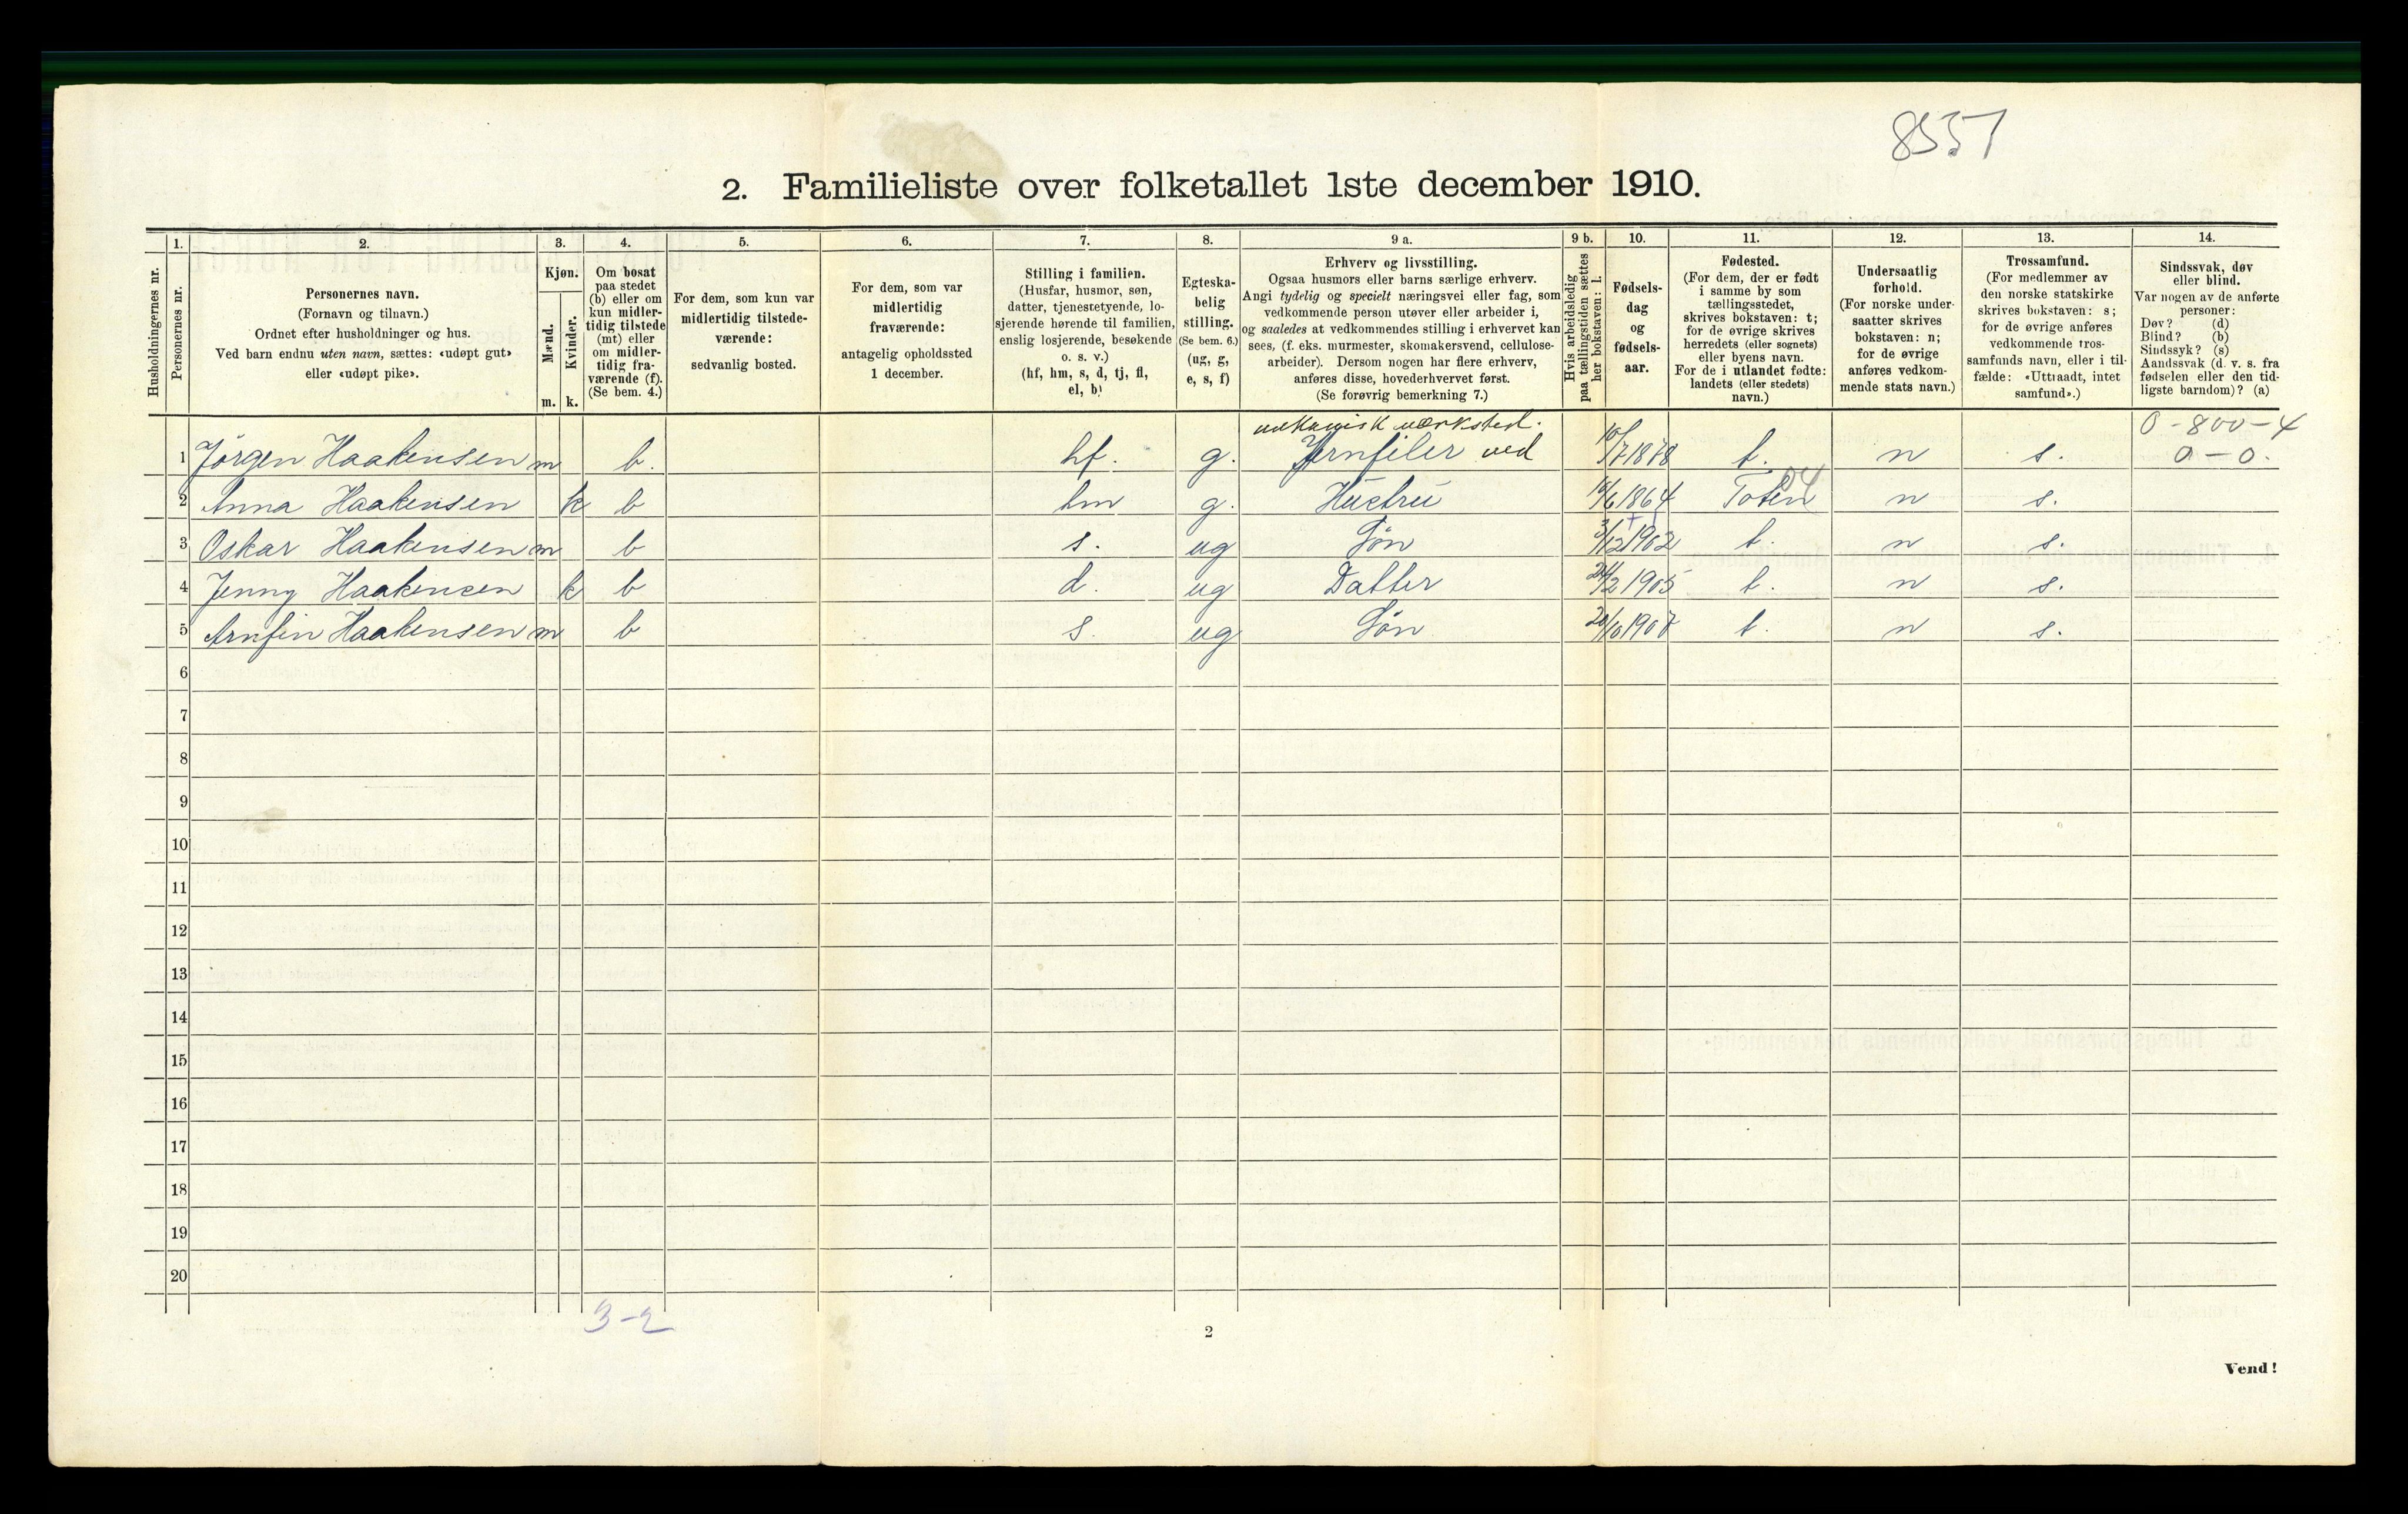 8557
2. Familieliste over folketallet 1ste december 1910.
Husholdningernes nr.
1.
Personernes nr.
2.
Personernes navn.
(Fornavn og tilnavn.)
Ordnet efter husholdninger og hus.
Ved barn endnu uten navn, sættes: «udøpt gut»
eller «udøpt pike».
3.
Kjøn.
Mænd.
Kvinder.
m. k.
4.
Om bosat
paa stedet
(b) eller om
kun midler-
tidig tilstede
(mt) eller
om midler-
tidig fra-
værende (f).
(Se bem. 4.)
5.
For dem, som kun var
midlertidig tilstede-
værende:
sedvanlig bosted.
6.
For dem, som var
midlertidig
fraværende:
antagelig opholdssted
1 december.
7.
Stilling i familien.
(Husfar, husmor, søn,
datter, tjenestetyende, lo-
sjerende hørende til familien,
enslig losjerende, besøkende
o. s. v.)
(hf, hm, s, d, tj, fl,
el, b)
8.
Egteska-
belig
stilling.
(Se bem. 6.)
(ug, g,
e, s, f)
9 a.
Erhverv og livsstilling.
Ogsaa husmors eller barns særlige erhverv.
Angi tydelig og specielt næringsvei eller fag, som
vedkommende person utøver eller arbeider i,
og saaledes at vedkommendes stilling i erhvervet kan
sees, (f. eks. murmester, skomakersvend, cellulose-
arbeider). Dersom nogen har flere erhverv,
anføres disse, hovederhvervet først.
(Se forøvrig bemerkning 7.)
9 b.
Hvis arbeidsledig
paa tællingstiden sættes
her bokstaven: l.
10.
Fødsels-
dag
og
fødsels-
aar.
11.
Fødested.
(For dem, der er født
i samme by som
tællingsstedet,
skrives bokstaven: t;
for de øvrige skrives
herredets (eller sognets)
eller byens navn.
For de i utlandet fødte:
landets (eller stedets)
navn.)
12.
Undersaatlig
forhold.
(For norske under-
saatter skrives
bokstaven: n;
for de øvrige
anføres vedkom-
mende stats navn.)
13.
Trossamfund.
(For medlemmer av
den norske statskirke
skrives bokstaven: s;
for de øvrige anføres
vedkommende tros-
samfunds navn, eller i til-
fælde: «Uttraadt, intet
samfund».)
14.
Sindssvak, døv
eller blind.
Var nogen av de anførte
personer:
Døv? (d)
Blind? (b)
Sindssyk? (s)
Aandssvak (d. v. s. fra
fødselen eller den tid-
ligste barndom)? (a)
mekanisk værksted. 0-800-4
1 Jörgen Haakensen m b. hf. g. Jernfiler ved 10/7 1878 t. n s. 0-0.
2 Anna Haakensen k b hm g. Hustru 10/6 1864 Toten 04 n s.
3 Oskar Haakensen m b s. ug Søn 3/12 1902 t. n s.
4 Jenny Haakensen k b d. ug Datter 24/2 1905 t. n s.
5 Arnfin Haakensen m b s. ug Søn 20/10 1907 t. n s.
6
7
8
9
10
11
12
13
14
15
16
17
18
19
20
3-2
2
Vend!